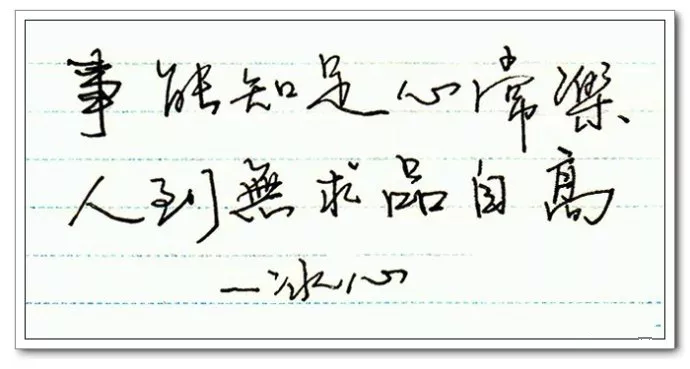 事能知足心常樂
人到無求品自高
一冰心